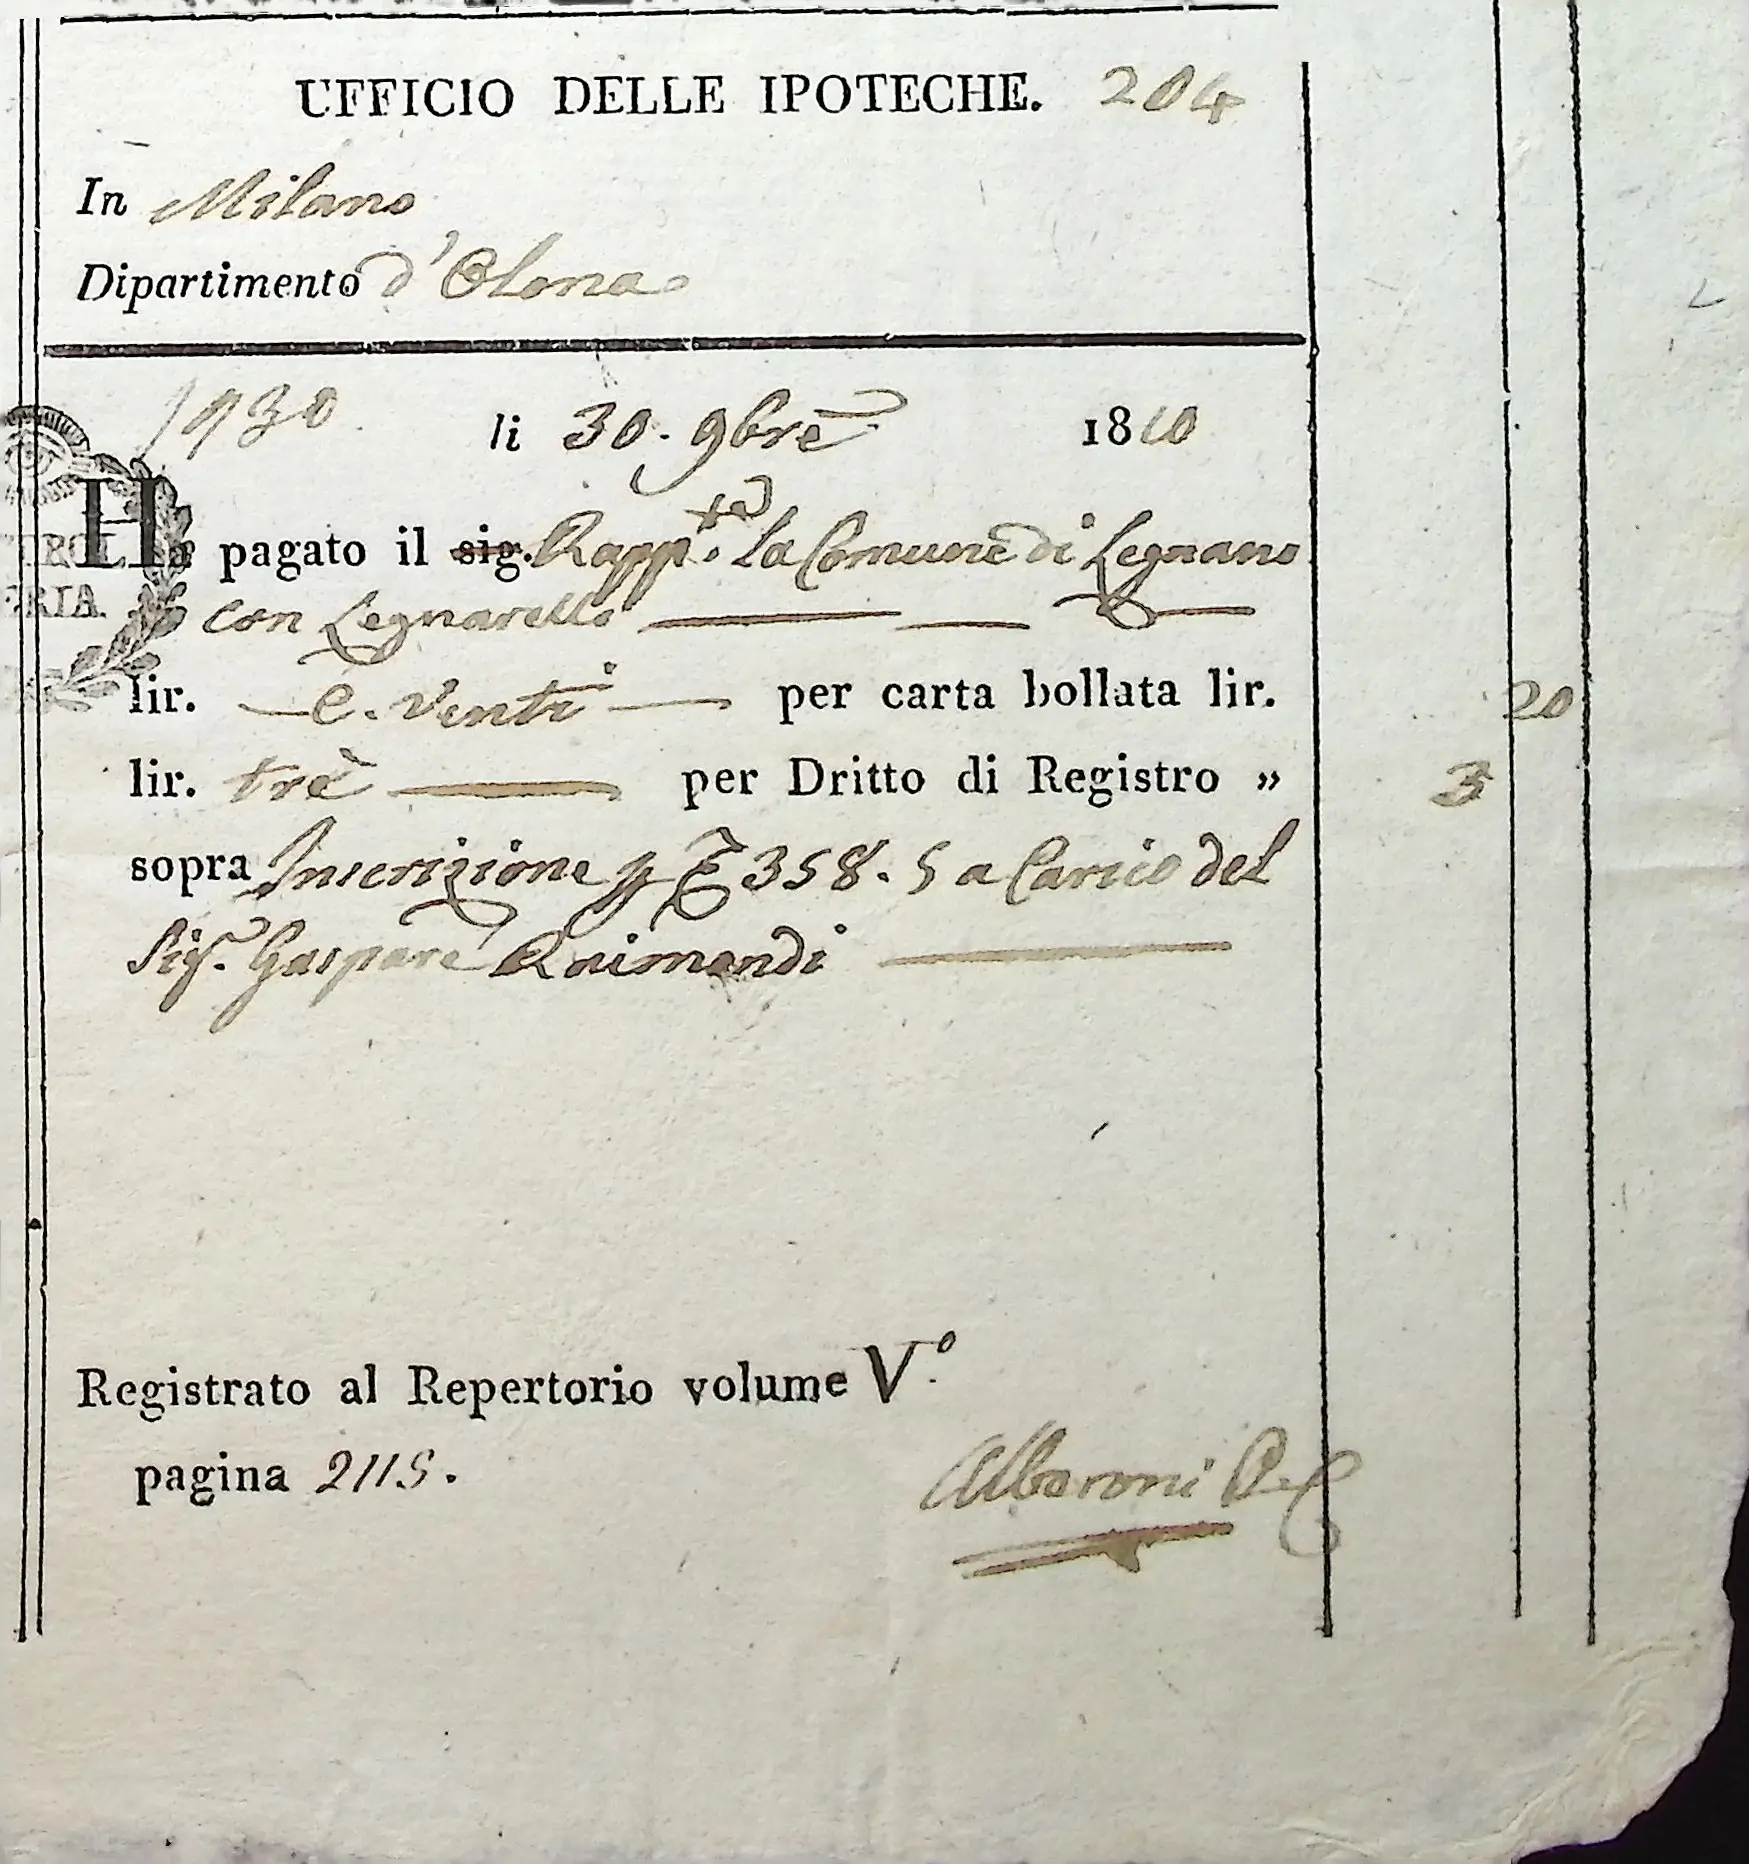 UFFICIO DELLE IPOTECHE. 204
In Milano
Dipartimento d'Olona
1930 li 30. 9bre 1810
Ha pagato il sig. Rapp.te la Comune di Legnano
con Legnarello
lir. c. venti per carta bollata lir. 20
lir. trè per Dritto di Registro » 3
sopra Inscrizione p 358. 5 a Carico del
Sig.r Gaspare Raimondi
Registrato al Repertorio volume V.o
pagina 2115.
Alberoni